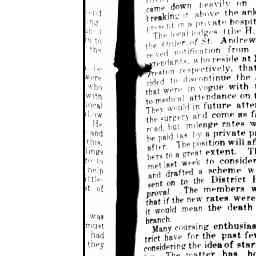 came down heavily on
breaking it above the ank
present in a private hospit
The local lodges (the H.
the Order of St. Andrew
ceived notification from
attendants, who reside at
respectively, that
cided to discontinue the
that were in vogue with
to medical attendance on t
They would in future atte
the surgery and come as f
road, but mileage rates w
be paid (as by a private p
after. The position will af
bers to a great extent. Th
met last week to consider
and drafted a scheme w
sent on to the District E
proval. The members w
that if the new rates were
it would mean the death
branch.
Many coursing enthusias
trict have for the past few
considering the idea of star
The matter has be
the
were
who
with
local
He
and
this,
help
of
was
must
had
they